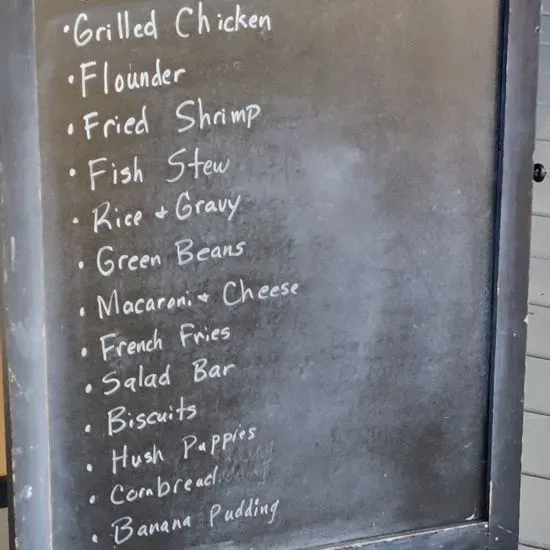 • Grilled Chicken
• Flounder
• Fried Shrimp
• Fish Stew
• Rice + Gravy
• Green Beans
• Macaroni + Cheese
• French Fries
• Salad Bar
• Biscuits
• Hush Puppies
• Cornbread
• Banana Pudding